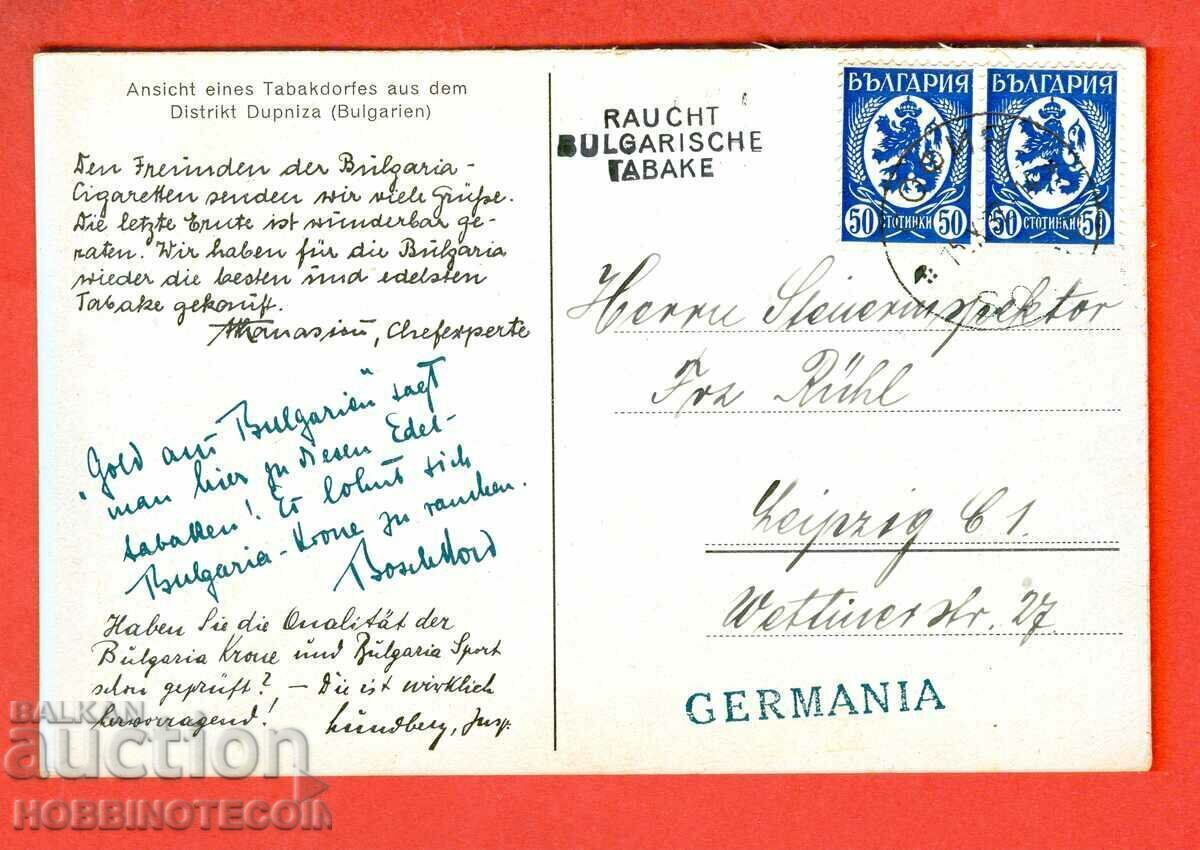 Ansicht eines Tabakdorfes aus dem
Distrikt Dupniza (Bulgarien)
Den Freunden der Bulgaria-
Cigaretten senden wir viele Grüße.
Die letzte Ernte ist wunderbar ge-
raten. Wir haben für die Bulgaria
wieder die besten und edelsten
Tabake gekauft.
Athanasiou, Chefexperte
"Gold aus Bulgarien" sagt
man hier zu diesen Edel-
tabakken! Es lohnt sich
Bulgaria-Krone zu rauchen.
Haben Sie die Qualität der
Bulgaria Krone und Bulgaria Sport
schon geprüft? – Die ist wirklich
hervorragend!
Lundberg, Insp.
RAUCHT
BULGARISCHE
TABAKE
БЪЛГАРИЯ
50 СТОТИНКИ 50
БЪЛГАРИЯ
50 СТОТИНКИ 50
СОФИЯ
Herrn Steuerinspektor
Frz Rühl
Leipzig C 1.
Wettinerstr. 27
GERMANIA
BALKAN
auction
HOBBINOTECOIN